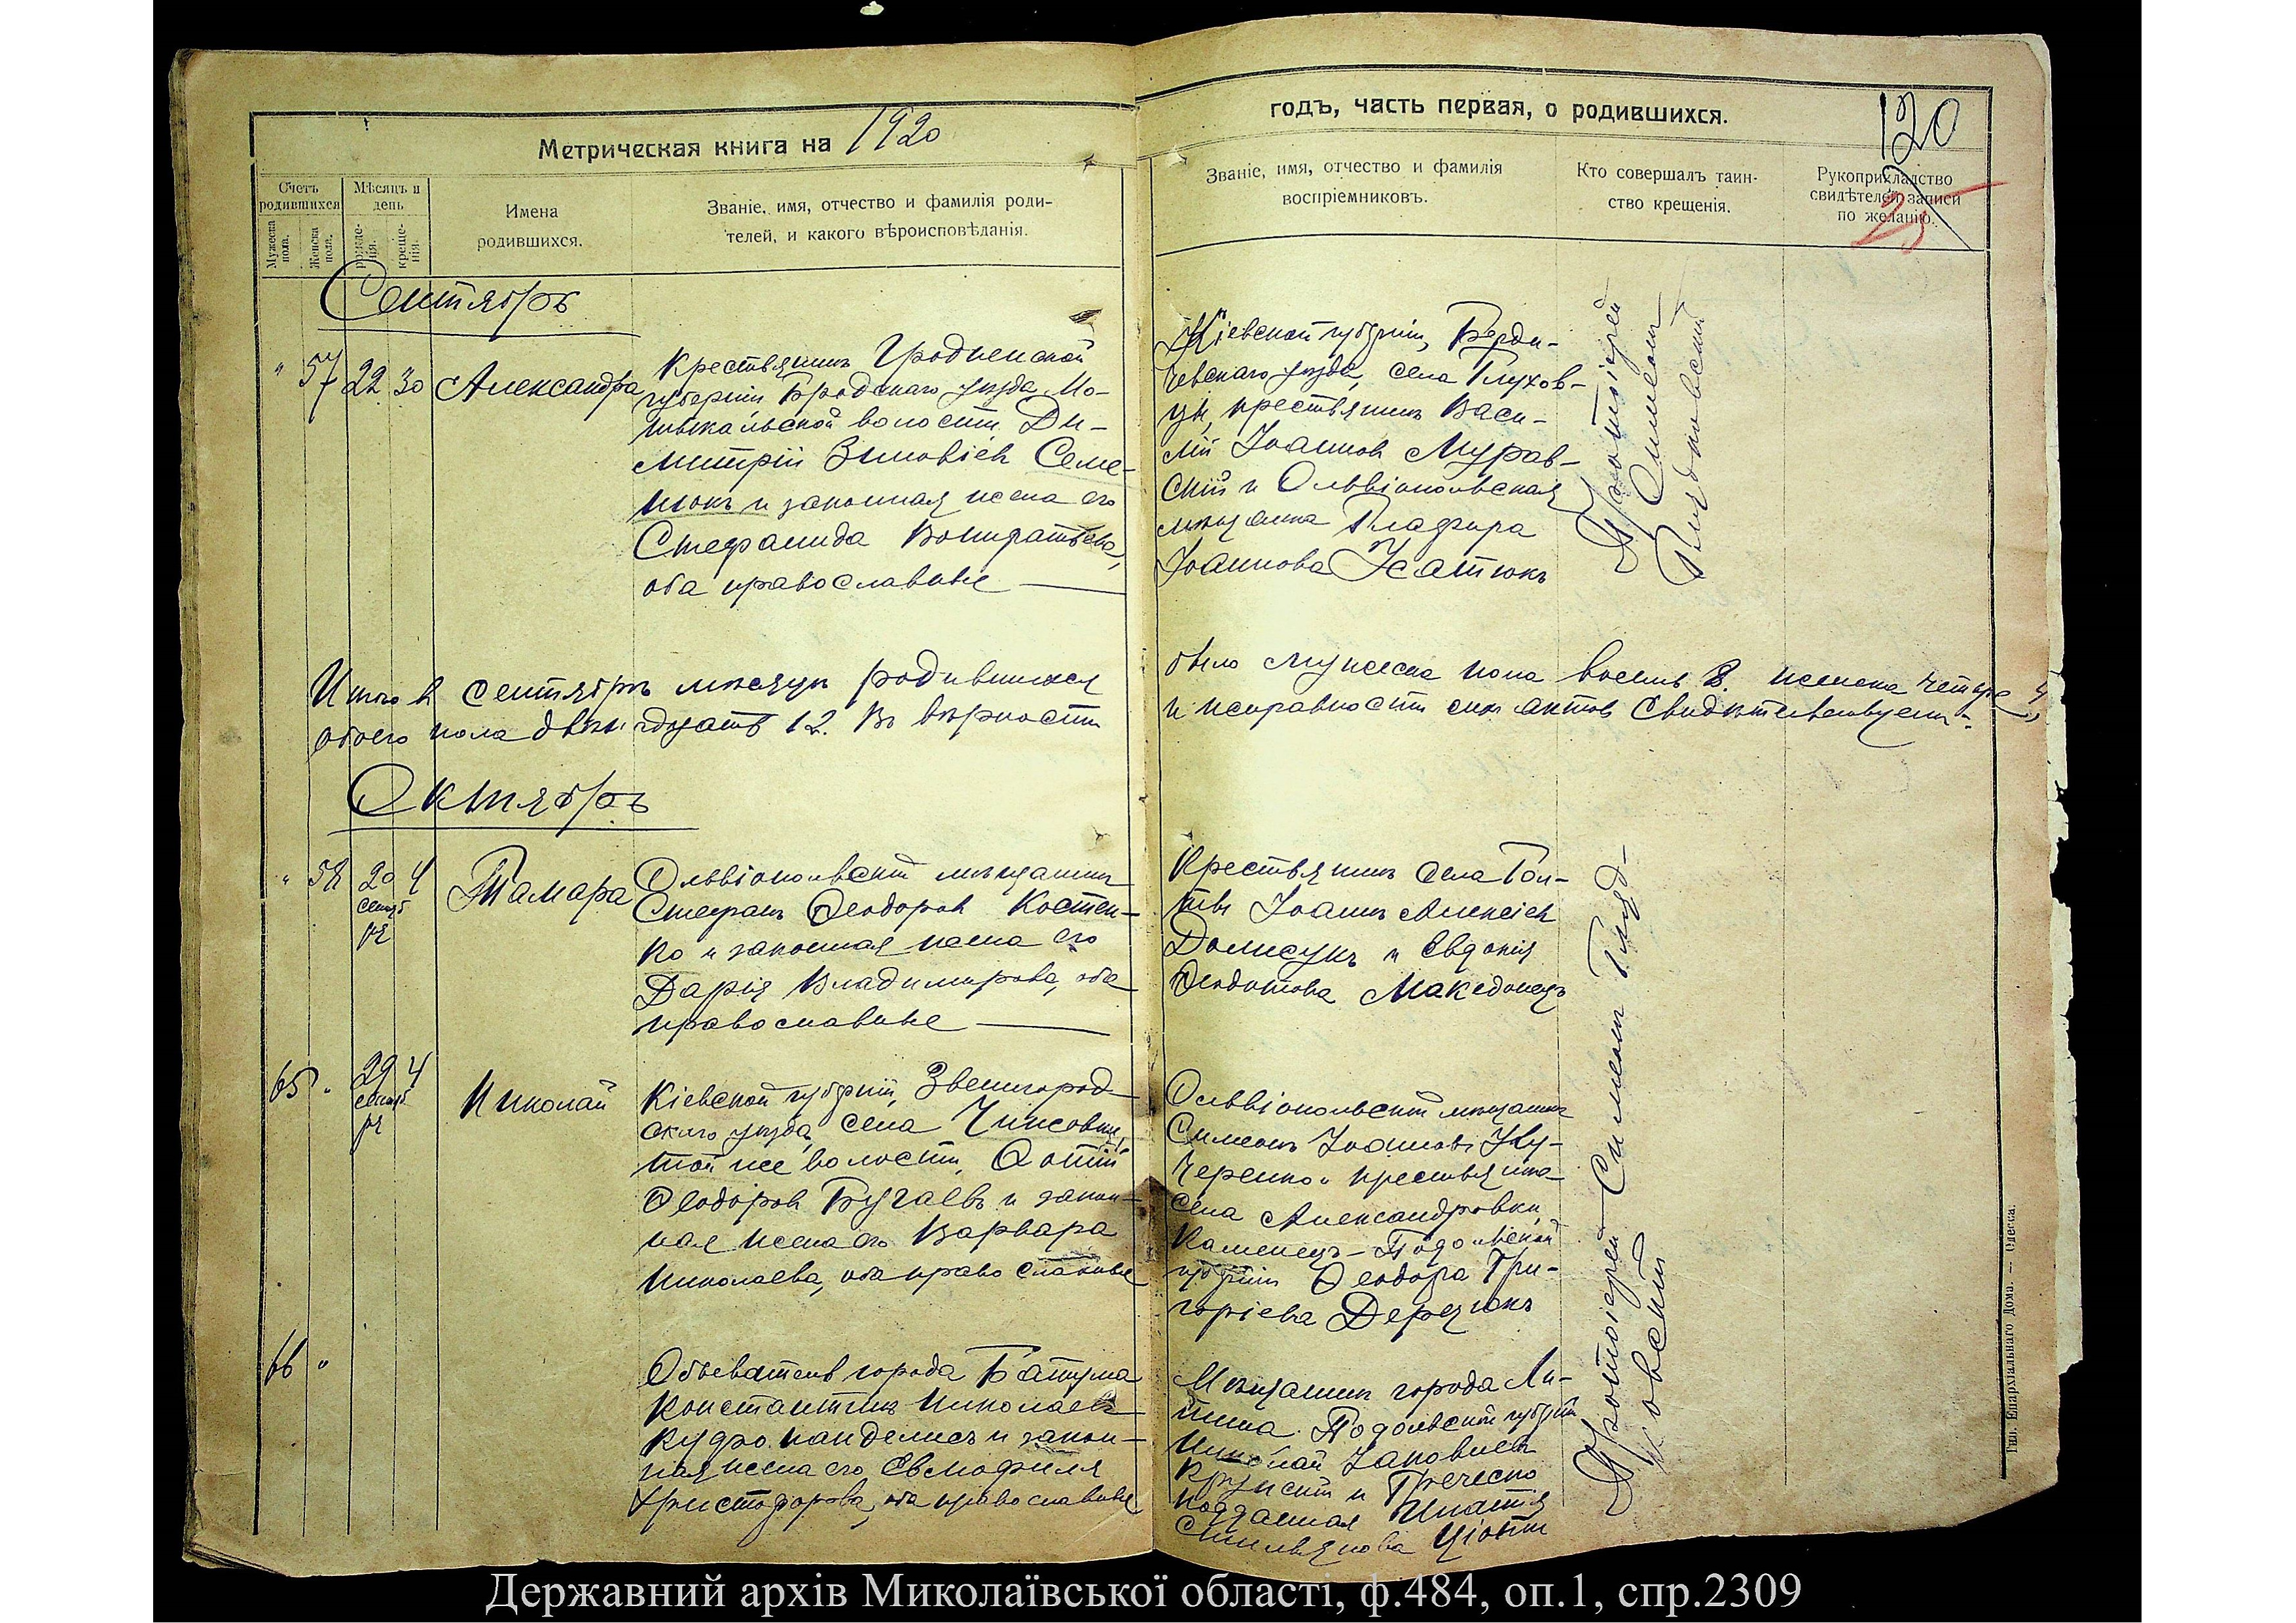 Метрическая книга на 1920
годъ, часть первая, о родившихся.
120
25
Счетъ родившихся
Мужеска пола.
Женска пола.
Мѣсяцъ и день
рожде-нія.
креще-нія.
Имена родившихся.
Званіе, имя, отчество и фамилія роди-
телей, и какого вѣроисповѣданія.
Званіе, имя, отчество и фамилія
воспріемниковъ.
Кто совершалъ таин-
ство крещенія.
Рукоприкладство
свидѣтелей записи
по желанію.
Сентябрь
" 57 22 30 Александра
Крестьянинъ Гродненской
губерніи Бродскаго уѣзда
волости Ди-
митрій Зиновіев Семе-
нюкъ и законная жена его
Стефанида
оба православные
Кіевской губерніи, Берди-
чевскаго уѣзда, села Глухов-
цы, крестьянинъ Васи-
лій Іоаннов Мурав-
скій и Ольвіопольская
мѣщанка Глафира
Іоаннова
Протоіерей
Симеон
Глядковскій
Итого в сентябрѣ мѣсяцѣ родившихся
было мужеска пола восемь 8. женска четыре 4,
обоего пола двѣнадцать 12. Въ вѣрности
и исправности сих актов свидѣтельствуем:
Октябрь
" 58 20 сентября 4 Тамара
Ольвіопольскій мѣщанинъ
Стефанъ Ѳеодоров Костен-
ко и законная жена его
Дарія Владимирова, оба
православные
Крестьянинъ села Гол-
ты Іоаннъ Алексіев
и Евдокія
Ѳеодотова Македонецъ
65 " 29 сентября 4 Николай
Кіевской губерніи, Звенигород-
скаго уѣзда, села Чижовки,
той же волости, Фотій
Ѳеодоров Бугаевъ и закон-
ная жена его Варвара
Николаева, оба православные
Ольвіопольскій мѣщанинъ
Симеонъ Іоаннов Ку-
черенко и крестьянка
села Александровки,
Каменецъ-Подольской
губерніи Ѳеодора Гри-
горіева
Протоіерей Симеон Гляд-
ковскій
66 "
Обыватель города Батума
Константинъ Николаев
и закон-
ная жена его
Христофорова, оба православные
Мѣщанинъ города Ли-
тина Подольской губерніи
Николай
и Греческо
подданная

Тип. Епархіальнаго Дома. — Одесса.
Державний архів Миколаївської області, ф.484, оп.1, спр.2309